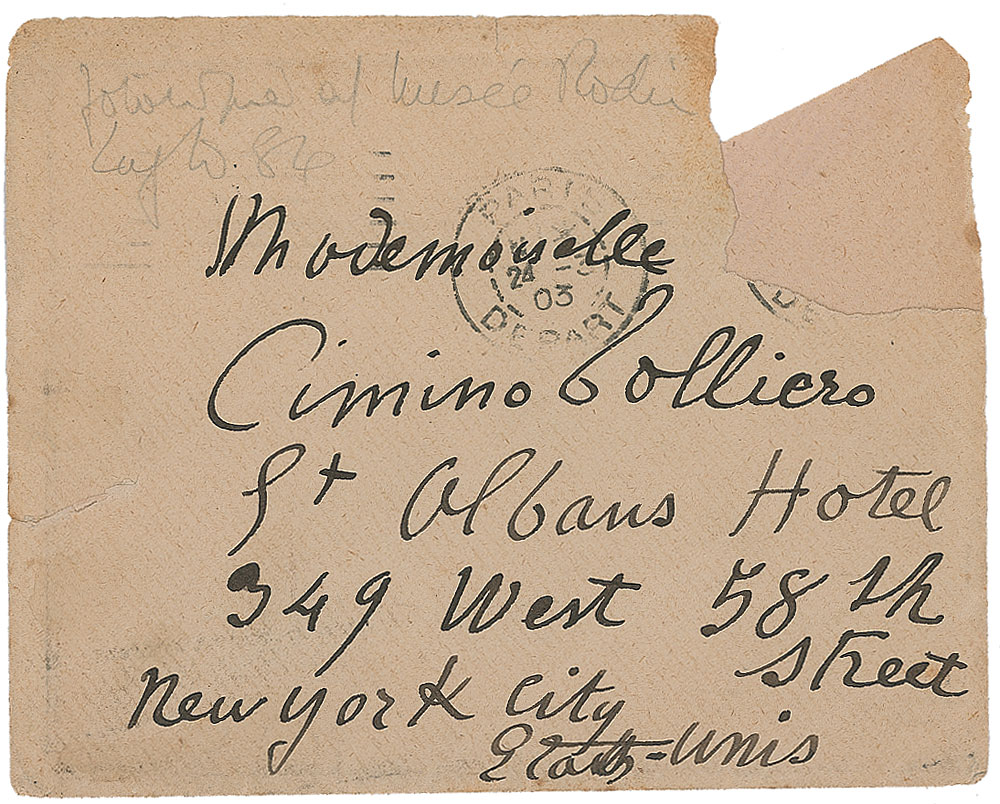 of Musée Rodin
86
PARIS
24 -3
03
DEPART
DE
Mademoiselle
Cimino Folliero
St Albans Hotel
349 West 58 th
Street
New york City
Etats-Unis